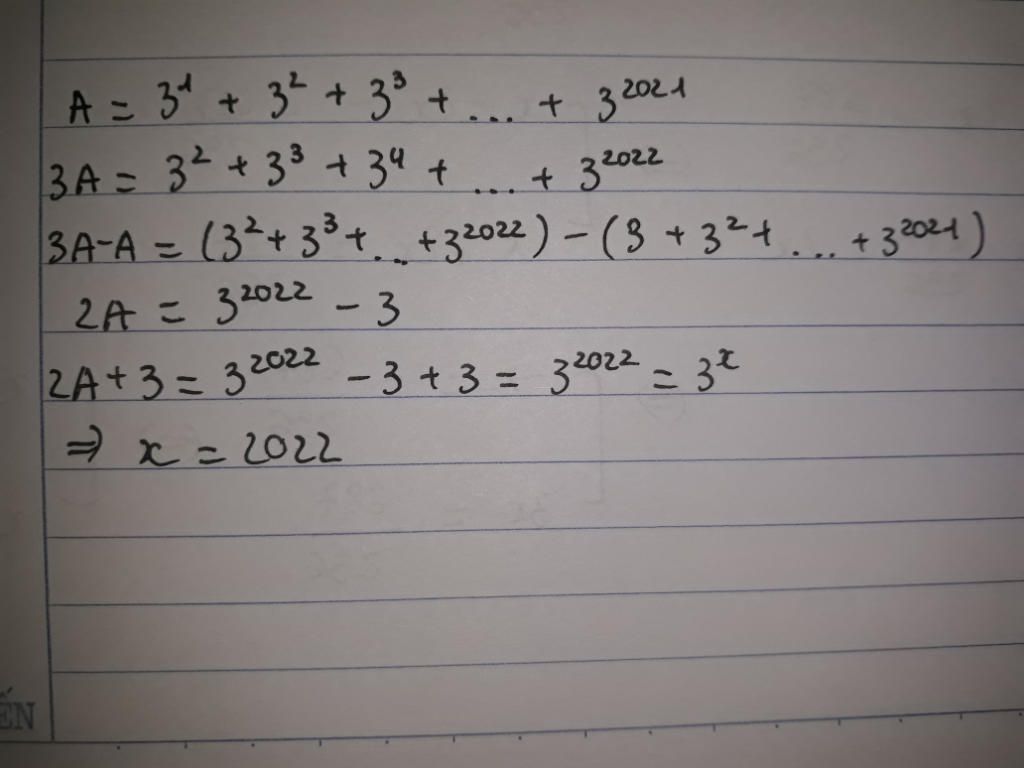 A = 3¹ + 3² + 3³ + ... + 3²⁰²¹
3A = 3² + 3³ + 3⁴ + ... + 3²⁰²²
3A-A = (3² + 3³ + ... + 3²⁰²²) - (3 + 3² + ... + 3²⁰²¹)
2A = 3²⁰²² - 3
2A + 3 = 3²⁰²² - 3 + 3 = 3²⁰²² = 3ˣ
⇒ x = 2022
ẾN